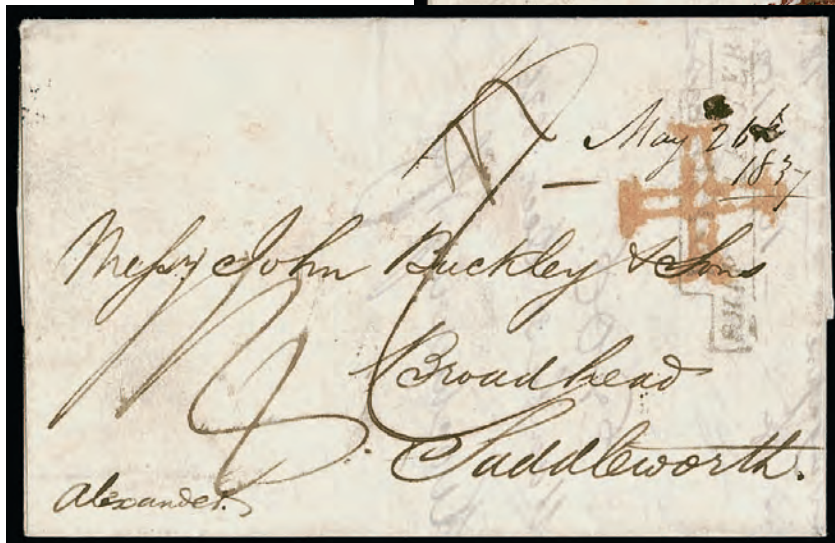 May 26th
1837
Messrs John Buckley & Sons
Broadhead
Saddleworth.
Alexander.